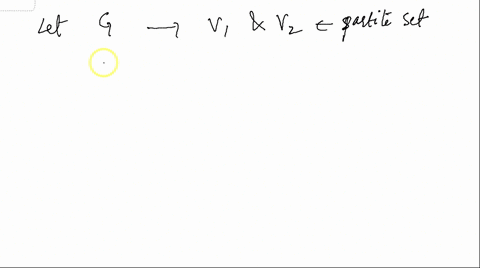 Let G → V₁ & V₂ ← partite set